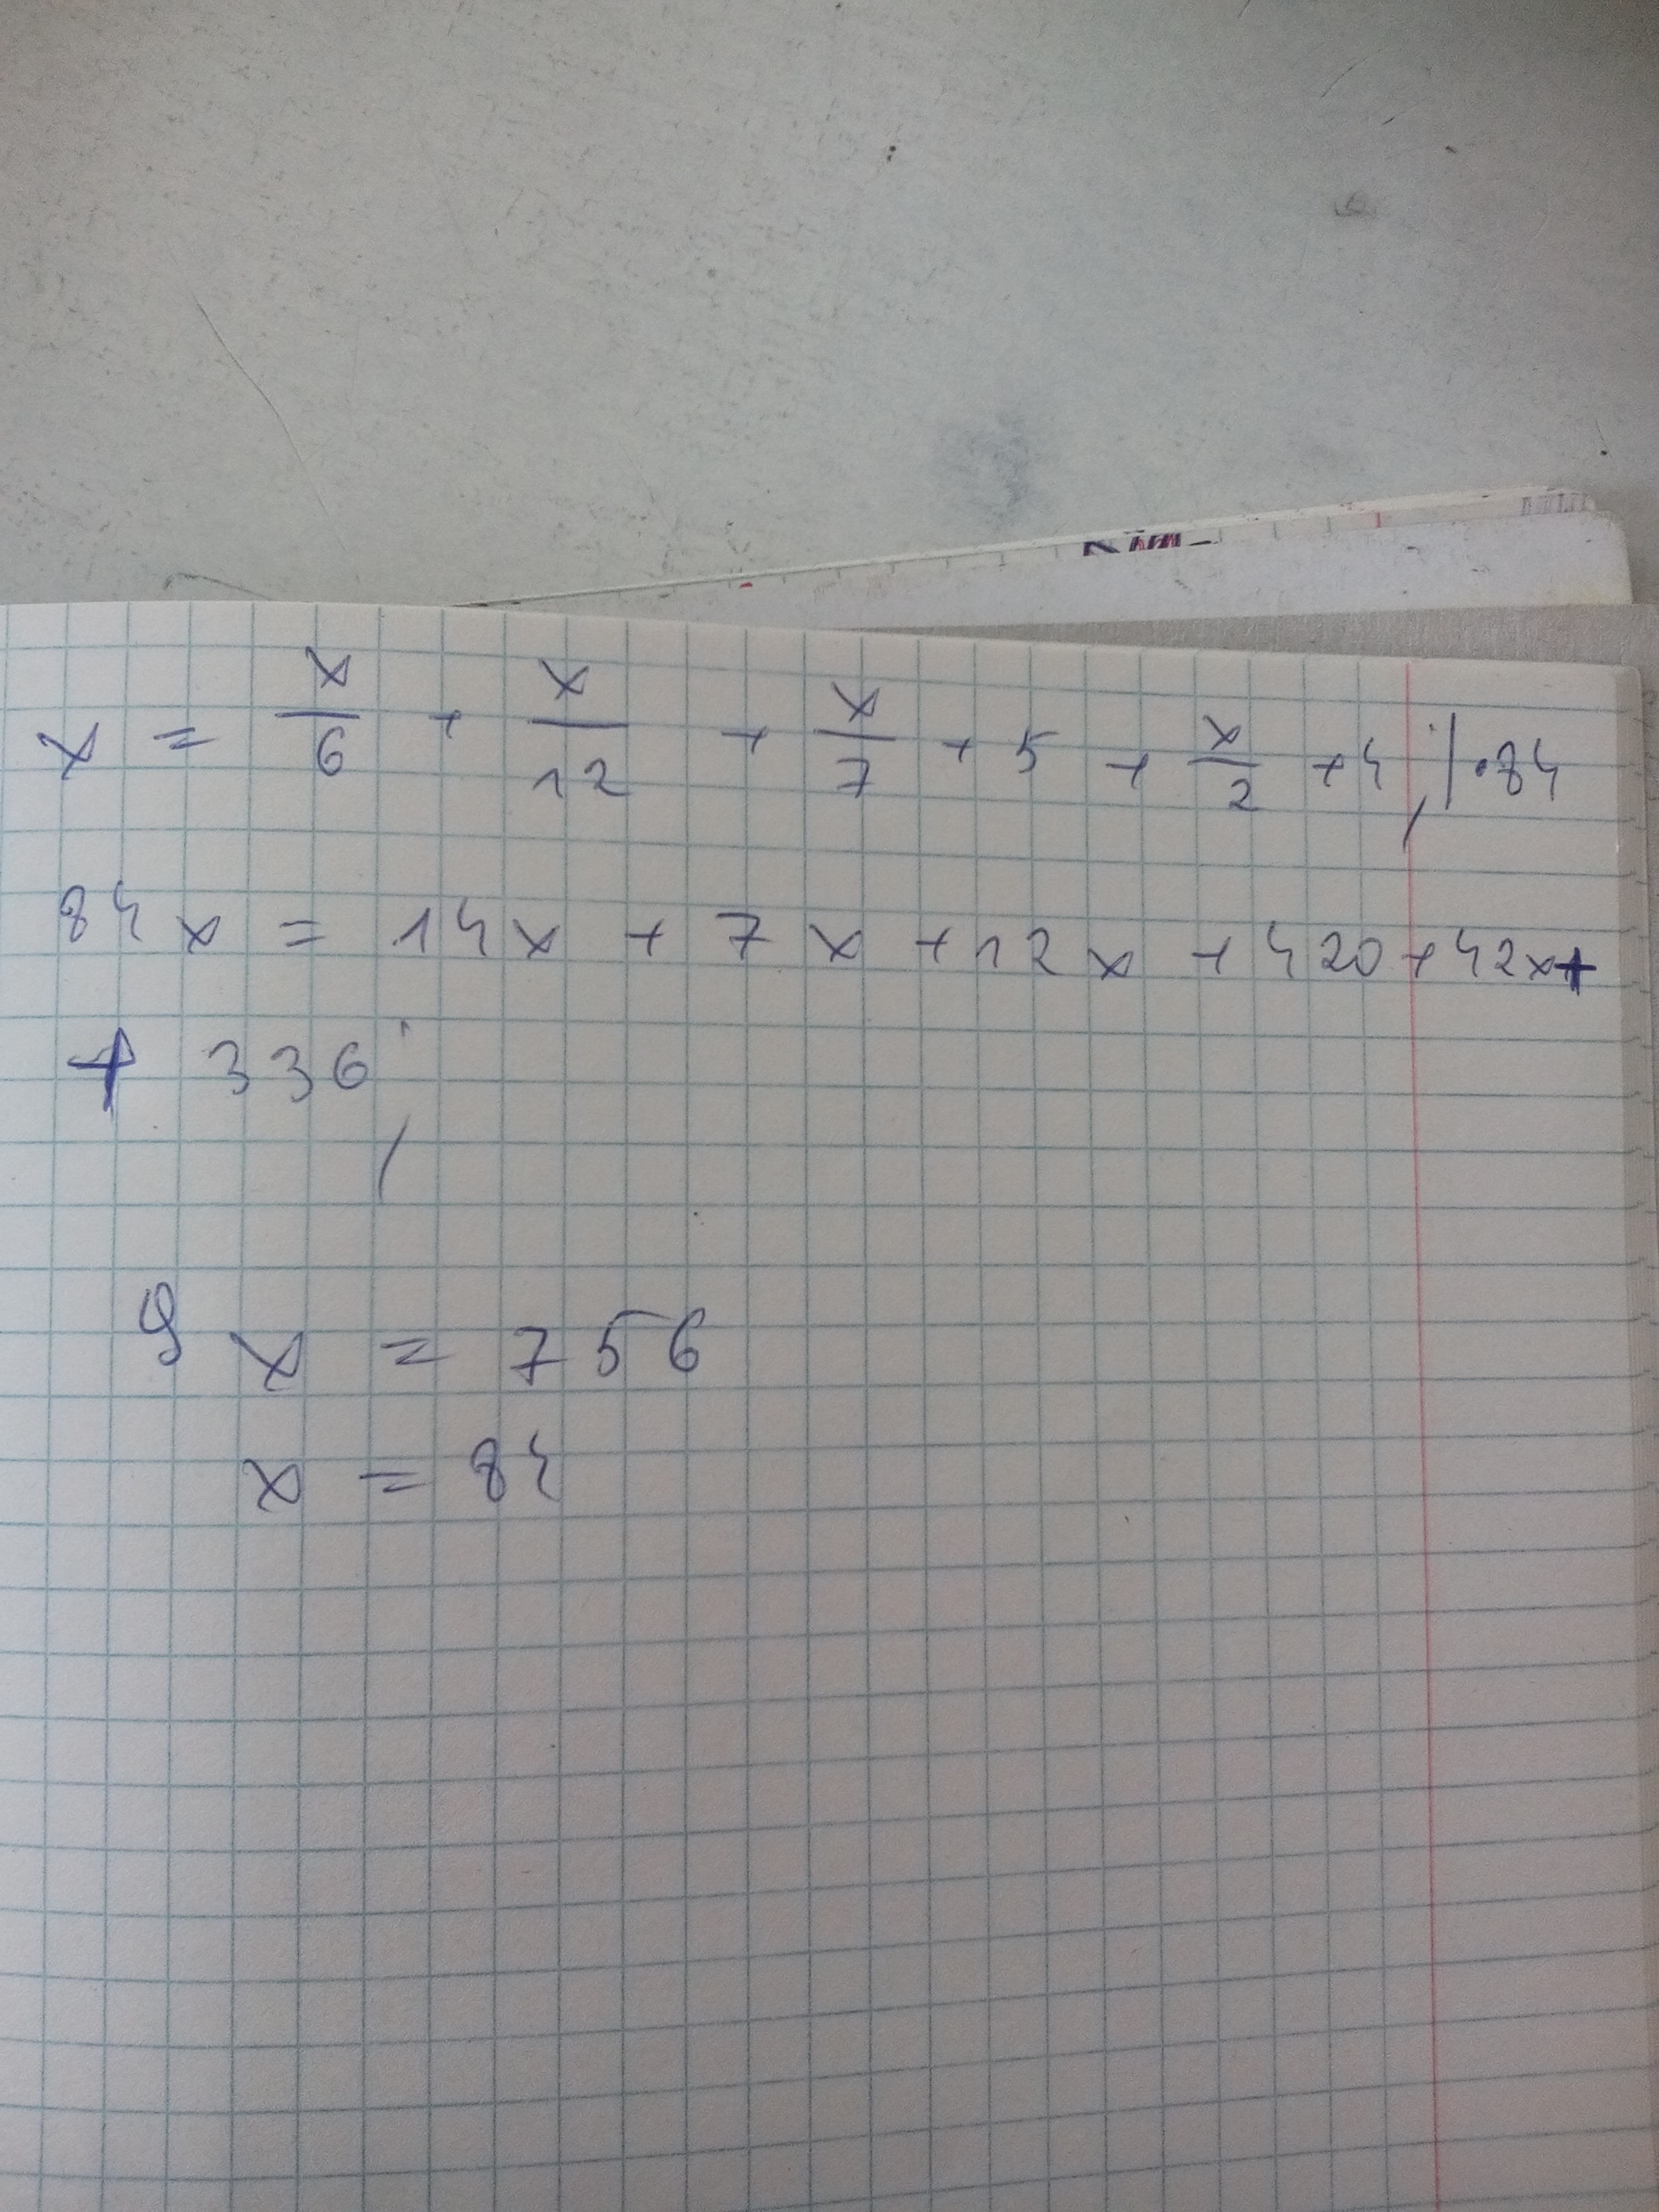 x = x/6 + x/12 + x/7 + 5 + x/2 + 4, | · 84
84x = 14x + 7x + 12x + 420 + 42x +
+ 336,
9x = 756
x = 84